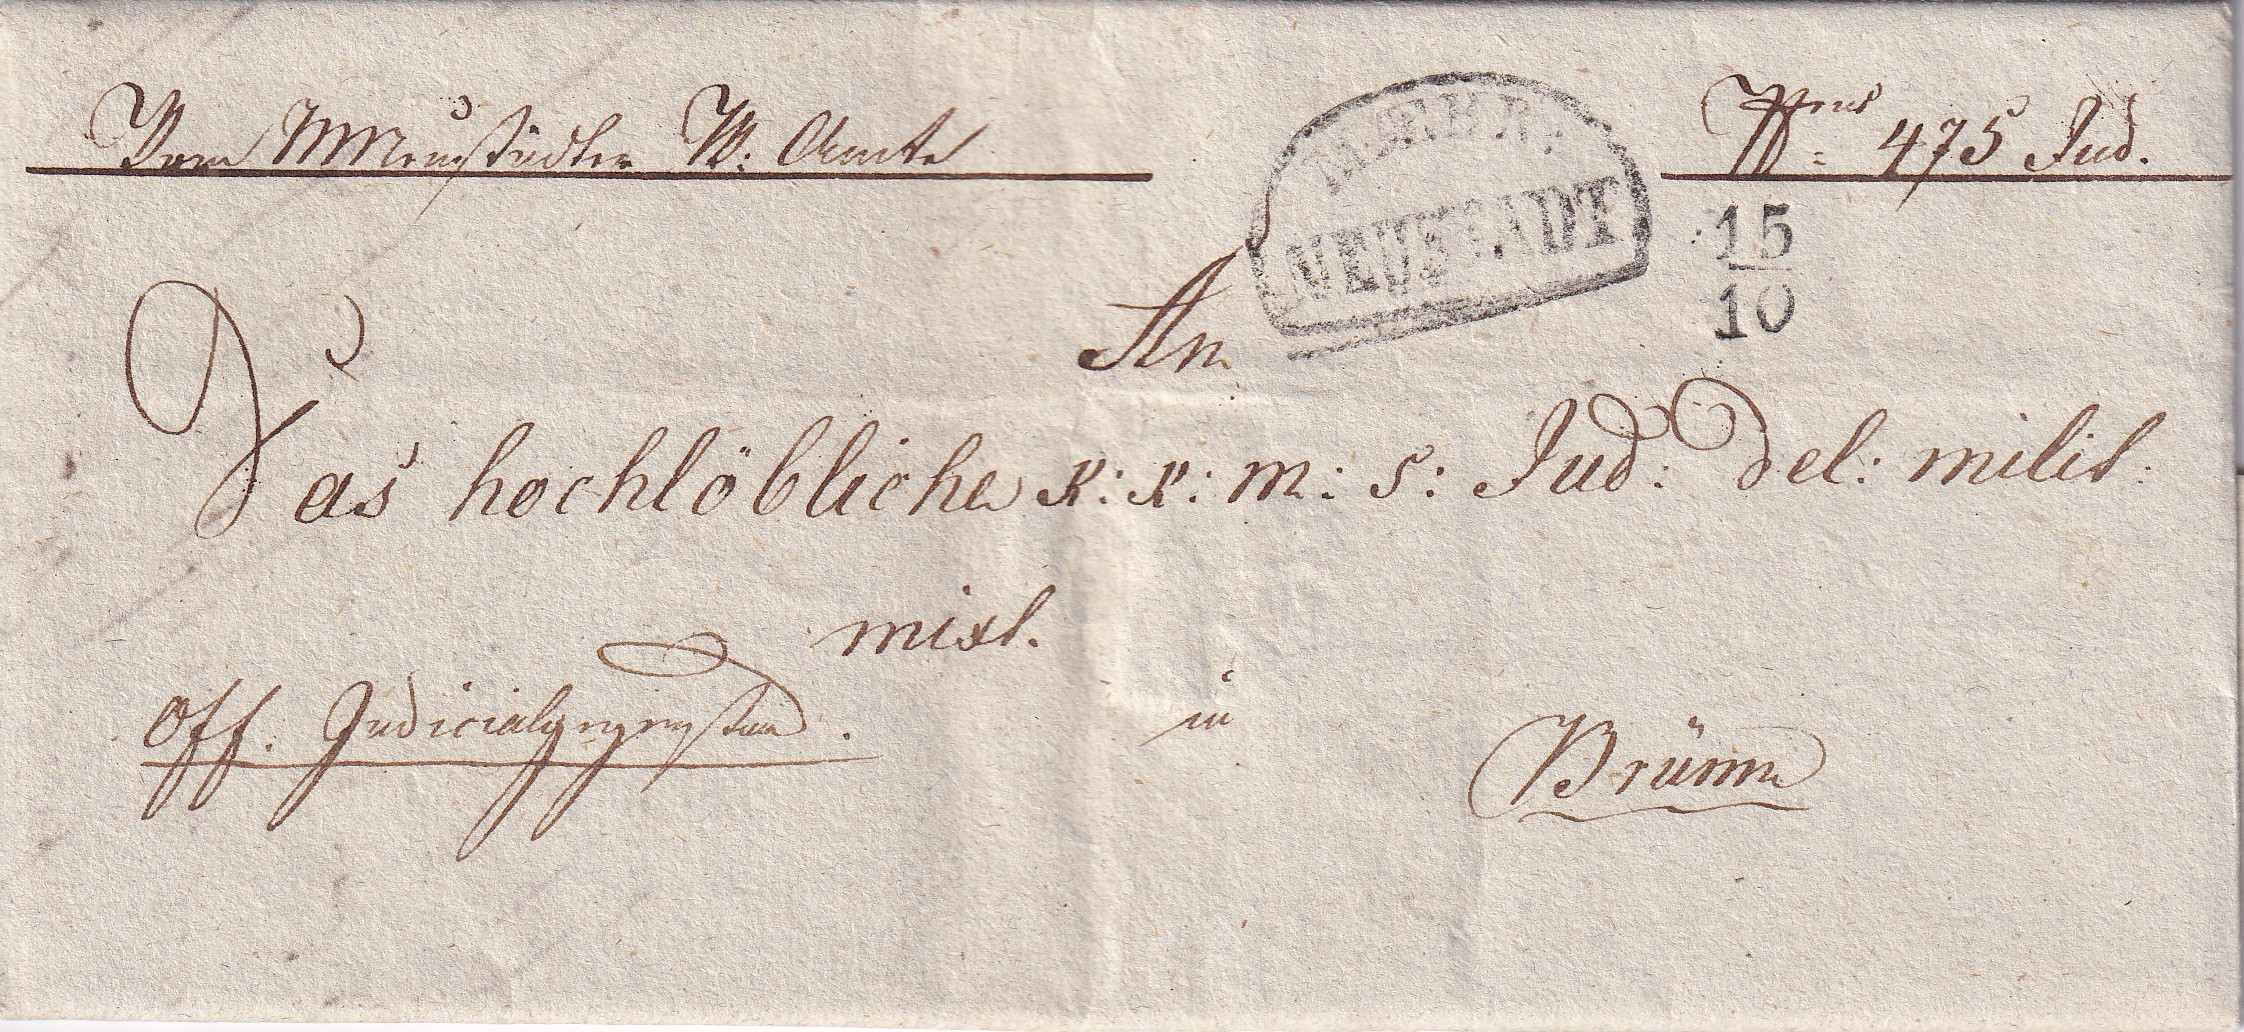 Vom MNeustädter W: Amte
MÆHR:
NEUSTADT
Nrus 475 Jud.
15
10
An
Das hochlöbliche k: k: m: s: Jud: del: milit:
mixt.
Off. Judicialgegenstand.
in
Brünn